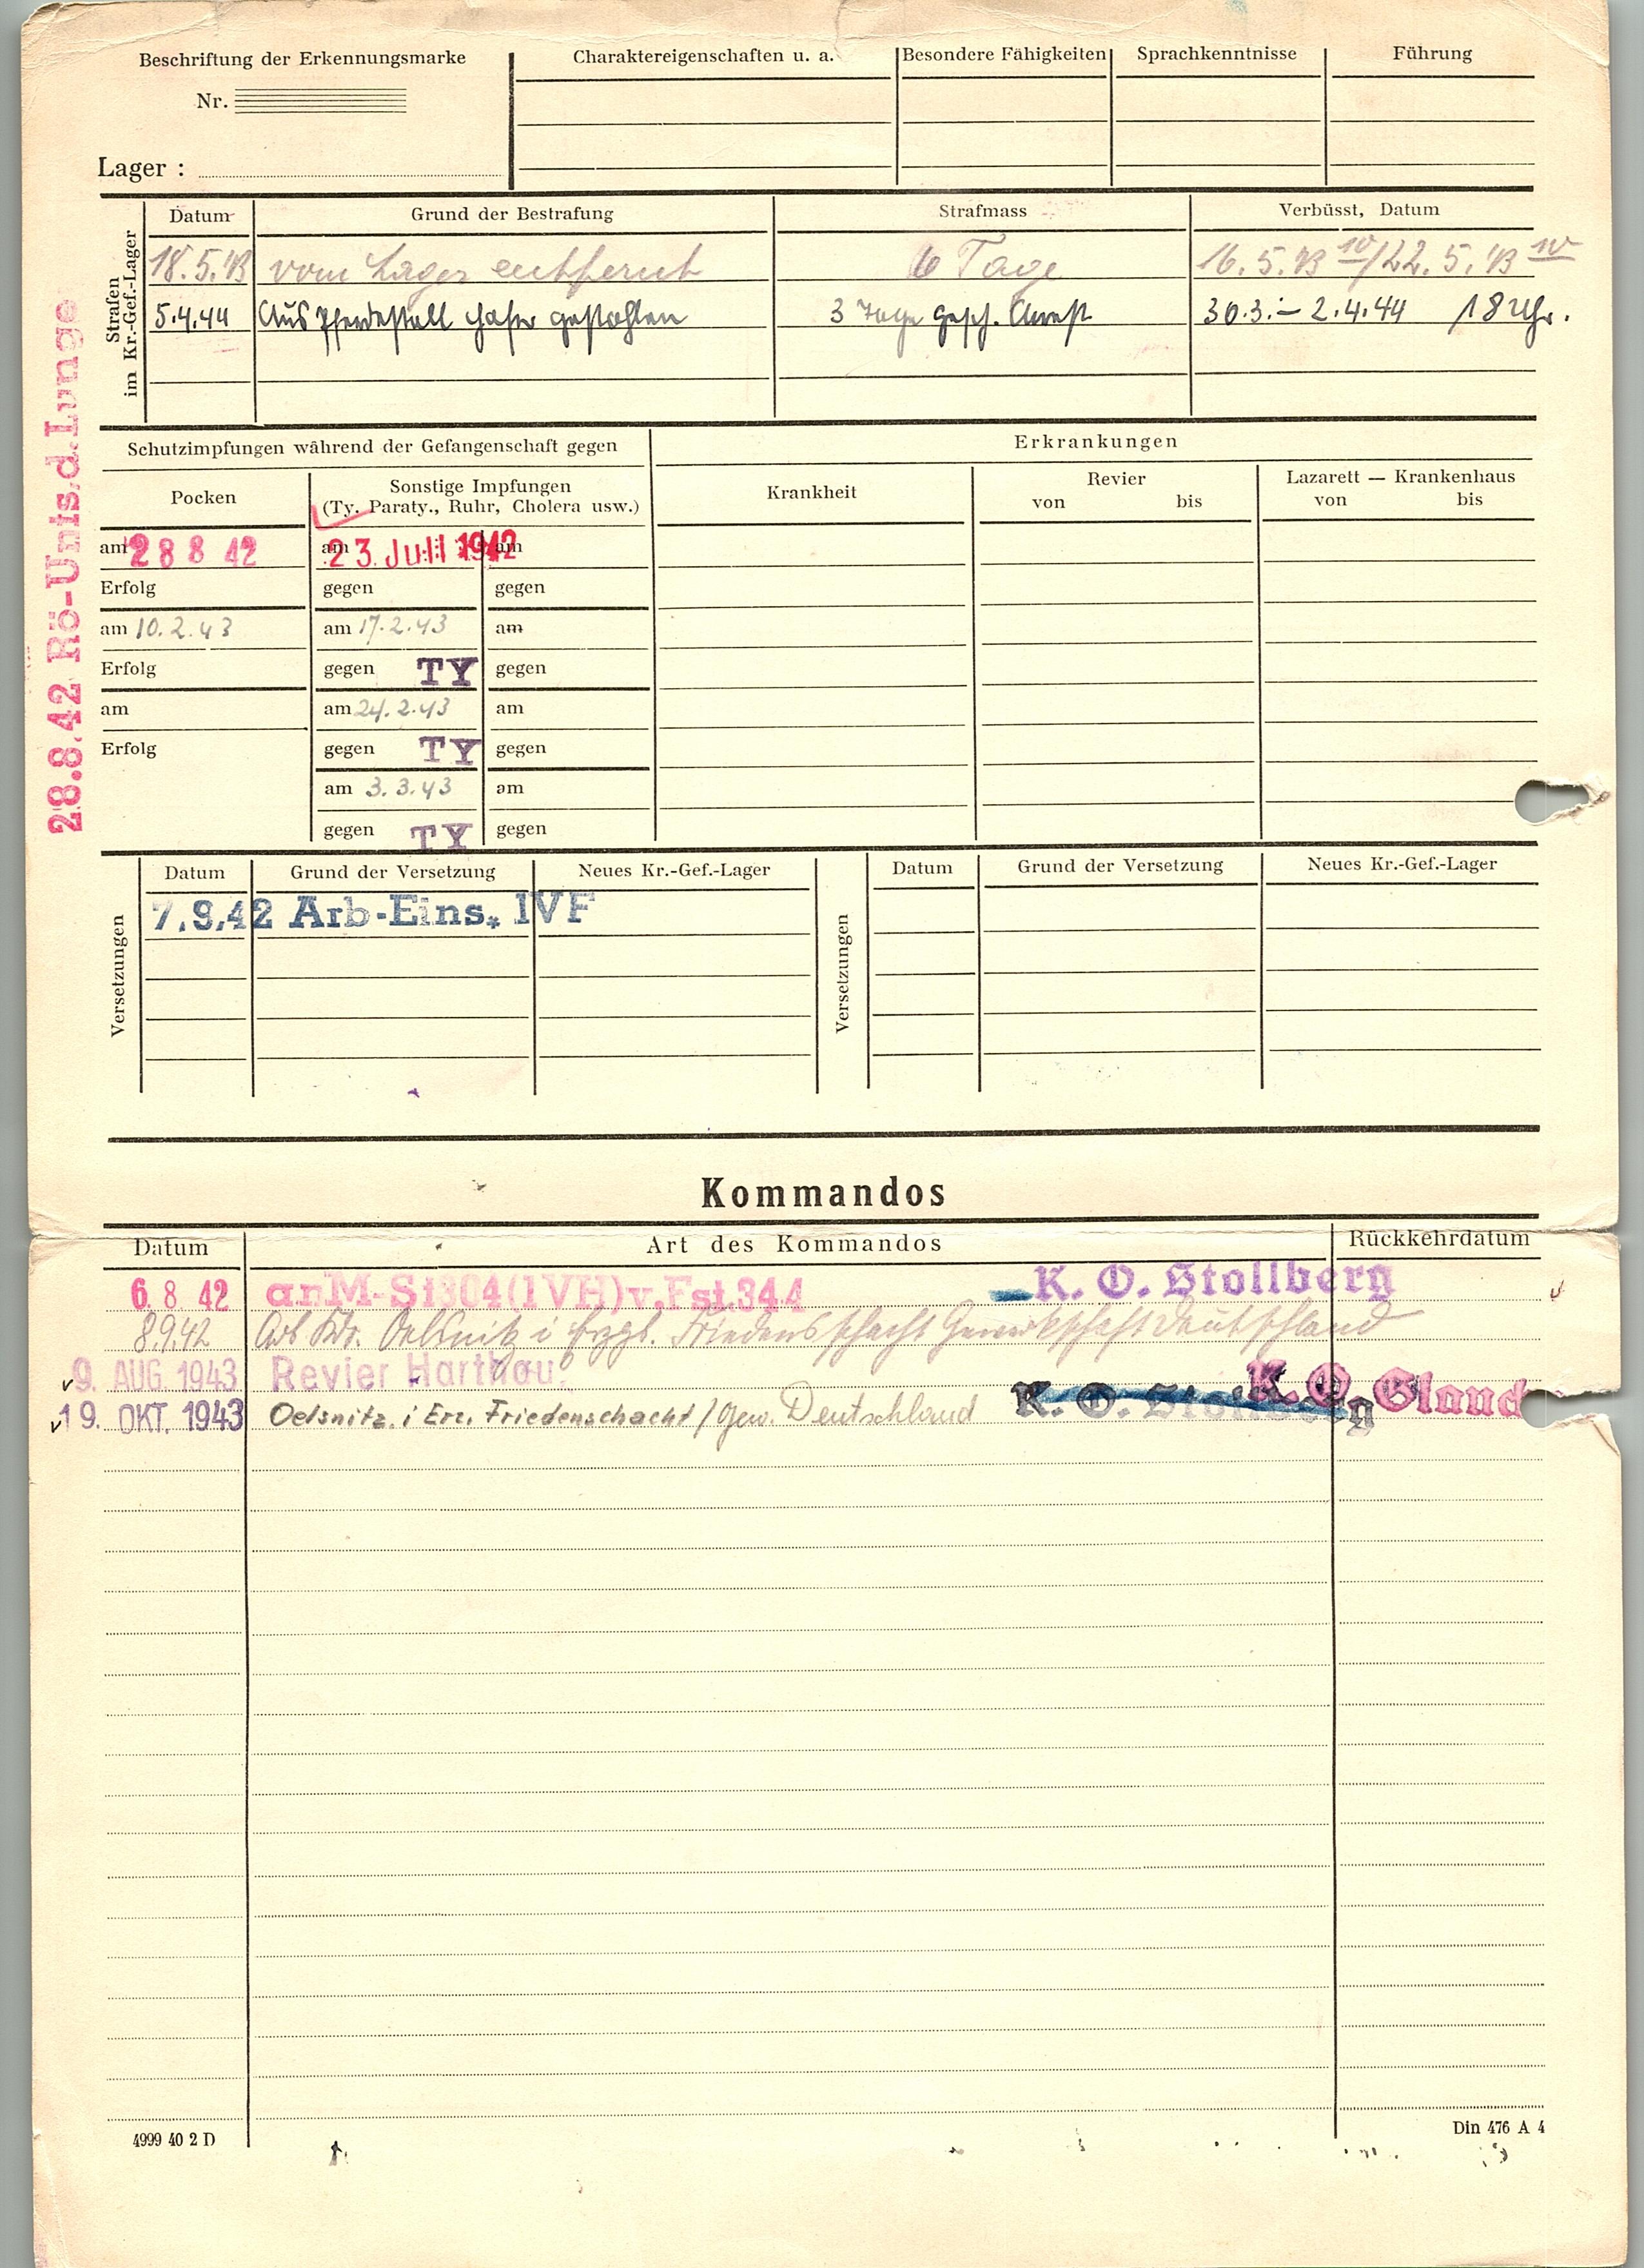 Beschriftung der Erkennungsmarke
Nr.
Lager :
Charaktereigenschaften u. a. Besondere Fähigkeiten Sprachkenntnisse Führung
Strafen im Kr.-Gef.-Lager
Datum Grund der Bestrafung Strafmass Verbüsst, Datum
18.5.43 vom Lager entfernt 6 Tage 16.5.43 10/22.5.43 10
5.4.44 Aus Pferdestall Hafer gestohlen 3 Tage gesch. Arrest 30.3.– 2.4.44 18 Uhr.
28.8.42 Rö-Unts.d.Lunge
Schutzimpfungen während der Gefangenschaft gegen Erkrankungen
Pocken Sonstige Impfungen
(Ty. Paraty., Ruhr, Cholera usw.)
Krankheit Revier Lazarett — Krankenhaus
von bis von bis
am 28 8 42 am 23. Juli 1942 am
Erfolg gegen gegen
am 10.2.43 am 17.2.43 am
Erfolg gegen TY gegen
am am 24.2.43 am
Erfolg gegen TY gegen
am 3.3.43 am
gegen TY gegen
Versetzungen
Datum Grund der Versetzung Neues Kr.-Gef.-Lager
7.9.42 Arb-Eins. IVF
Versetzungen
Datum Grund der Versetzung Neues Kr.-Gef.-Lager
Kommandos
Datum Art des Kommandos Rückkehrdatum
6. 8. 42 an M-St304(IVH)v.Fst.344 K. O. Stollberg
8.9.42 Arb Kdo. Oelsnitz i Erzgb. Friedensschacht Gewerkschaft Deutschland
9. AUG. 1943 Revier Harthau. K. O. Glauc
19. OKT. 1943 Oelsnitz i Erz. Friedenschacht / Gew. Deutschland K. O. Stollberg
4999 40 2 D
Din 476 A 4